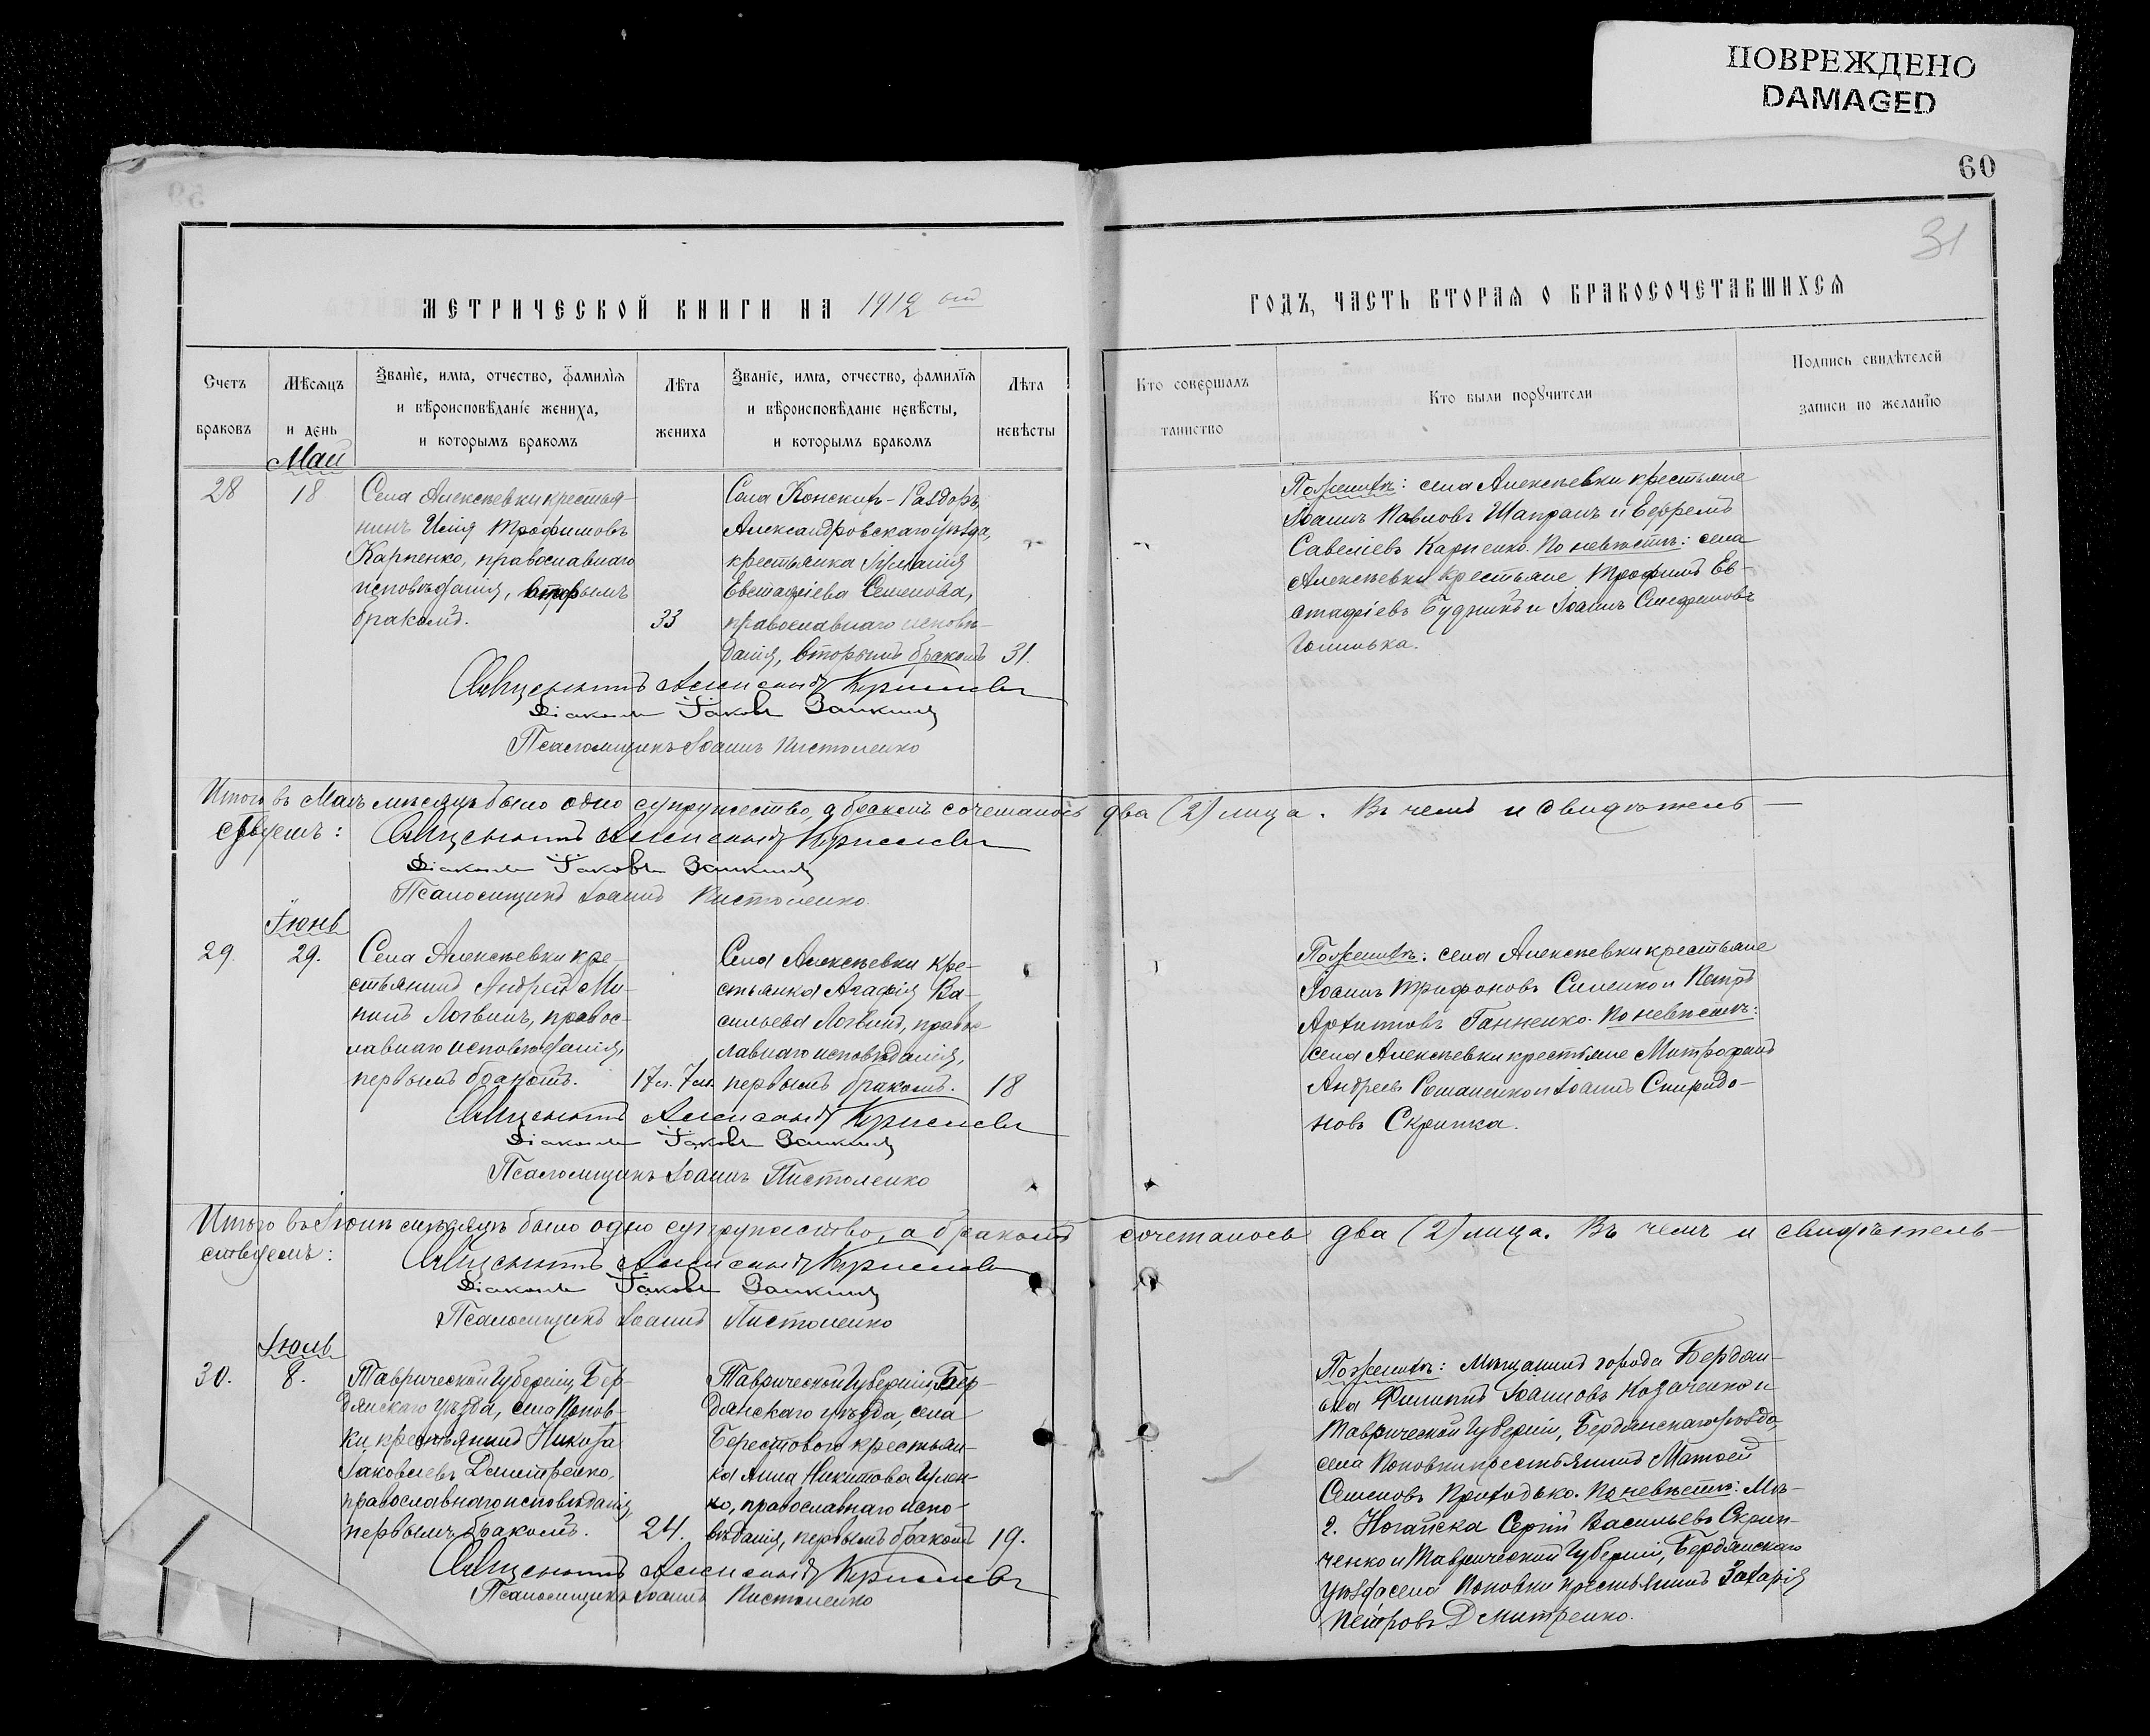 ПОВРЕЖДЕНО
DAMAGED
60
31
МЕТРИЧЕСКОЙ КНИГИ НА 1912 ый
ГОДЪ, ЧАСТЬ ВТОРАЯ О БРАКОСОЧЕТАВШИХСЯ
Счетъ браковъ
Мѣсяцъ и день
Званіе, имя, отчество, фамилія
и вѣроисповѣданіе жениха,
и которымъ бракомъ
Лѣта жениха
Званіе, имя, отчество, фамилія
и вѣроисповѣданіе невѣсты,
и которымъ бракомъ
Лѣта невѣсты
Кто совершалъ таинство
Кто были поручители
Подпись свидѣтелей
записи по желанію
Май
28
18
Села Алексѣевки крестья-
нинъ Илія Трофимовъ
Карпенко, православнаго
исповѣданія, вторымъ
бракомъ.
33
Села Конскихъ-Раздоръ,
Александровскаго уѣзда,
крестьянка
Евстафіева Семенова,
православнаго исповѣ-
данія, вторымъ бракомъ
31.
По женихѣ: села Алексѣевки крестьяне
Іоаннъ Павловъ Шапранъ и Ефремъ
Савеліевъ Карпенко. По невѣстѣ: села
Алексѣевки крестьяне Трофимъ Ев-
стафіевъ Будникъ и Іоаннъ
Священникъ Алексан Крисевъ
Діаконъ Іаковъ Заикинъ
Псаломщикъ Іоаннъ Пистоленко
Итого въ Маѣ мѣсяцѣ было одно супружество, а бракомъ сочеталось два (2) лица. Въ чемъ и свидѣтель-
ствуемъ:
Діаконъ Іаковъ Заикинъ
Псаломщикъ Іоаннъ Пистоленко
Іюнь
29
29.
Села Алексѣевки кре-
стьянинъ Андрей Ми-
Логвинъ, правос-
лавнаго исповѣданія,
первымъ бракомъ.
17 л. 7 м.
Села Алексѣевки кре-
стьянка Агафія Ва-
сильева Логвинъ, правос-
лавнаго исповѣданія,
первымъ бракомъ.
18
По женихѣ: села Алексѣевки крестьяне
Іоаннъ Трифоновъ Силенко и Петръ
Архиповъ Ганненко. По невѣстѣ:
села Алексѣевки крестьяне Митрофанъ
Андреевъ Романенко и Іоаннъ Спиридо-
новъ Скрипка.
Діаконъ Іаковъ Заикинъ
Псаломщикъ Іоаннъ Пистоленко
Итого въ Іюнѣ мѣсяцѣ было одно супружество, а бракомъ сочеталось два (2) лица. Въ чемъ и свидѣтель-
ствуемъ:
Діаконъ Іаковъ Заикинъ
Псаломщикъ Іоаннъ Пистоленко
Іюль
30.
8.
Таврической Губерніи, Бер-
дянскаго уѣзда, села Попов-
ки крестьянинъ Никола
Іаковлевъ Дмитренко,
православнаго исповѣданія
первымъ бракомъ.
24.
Таврической Губерніи, Бер-
дянскаго уѣзда, села
Берестового крестьян-
ка Анна Никитова Гулен-
ко, православнаго испо-
вѣданія, первымъ бракомъ
19.
По женихѣ: Мѣщанинъ города Бердян-
ска Филиппъ Іоанновъ Козаченко и
Таврической Губерніи, Бердянскаго уѣзда,
села Поповки крестьянинъ Матѳей
Семеновъ Приходько. По невѣстѣ: Мѣ-
г. Ногайска Сергій Васильевъ Скрип-
ченко и Таврической Губерніи, Бердянскаго
уѣзда села Поповки крестьянинъ Захарія
Петровъ Дмитренко.
Псаломщикъ Іоаннъ Пистоленко